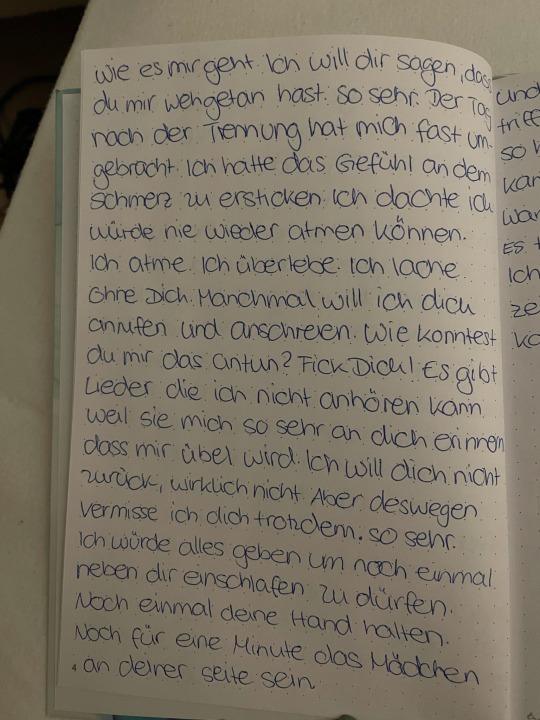 wie es mir geht. Ich will dir sagen, dass
du mir wehgetan hast. so sehr. Der Tag
nach der Trennung hat mich fast um-
gebracht. Ich hatte das Gefühl an dem
schmerz zu ersticken. Ich dachte ich
würde nie wieder atmen können.
Ich atme. Ich überlebe. Ich lache.
Ohne Dich. Manchmal will ich dich
anrufen und anschreien. Wie konntest
du mir das antun? Fick Dich! Es gibt
Lieder die ich nicht anhören kann
weil sie mich so sehr an dich erinnern
dass mir übel wird. Ich will dich nicht
zurück, wirklich nicht. Aber deswegen
vermisse ich dich trotzdem. so sehr.
Ich würde alles geben um noch einmal
neben dir einschlafen zu dürfen.
Noch einmal deine Hand halten.
Noch für eine Minute das Mädchen
an deiner seite sein.
und
so
Es
Ich